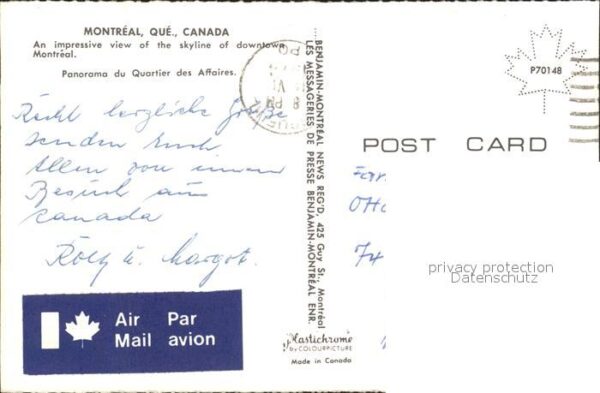 MONTRÉAL, QUÉ., CANADA
An impressive view of the skyline of downtown
Montréal.
Panorama du Quartier des Affaires.
Recht herzliche Grüße
senden Euch
Allen von
Besuch aus
Canada
Rolf u. Margot.
Air Par
Mail avion
...BENJAMIN-MONTREAL NEWS REG'D. 425 Guy St., Montréal
LES MESSAGERIES DE PRESSE BENJAMIN-MONTRÉAL ENR.
Plastichrome
by COLOURPICTURE
Made in Canada
8 PM
VI
P70148
POST CARD
74
privacy protection
Datenschutz